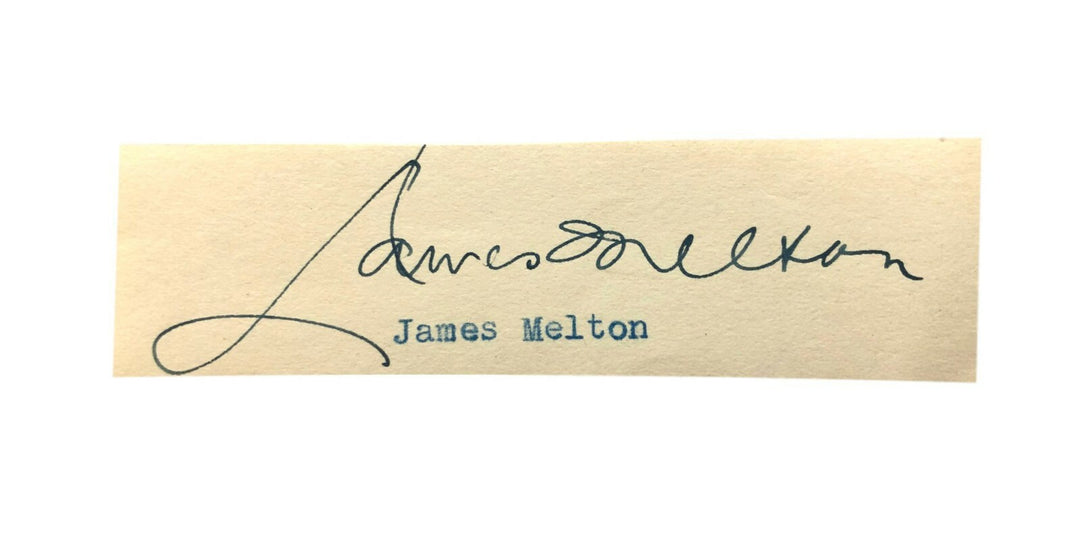 James Melton
James Melton